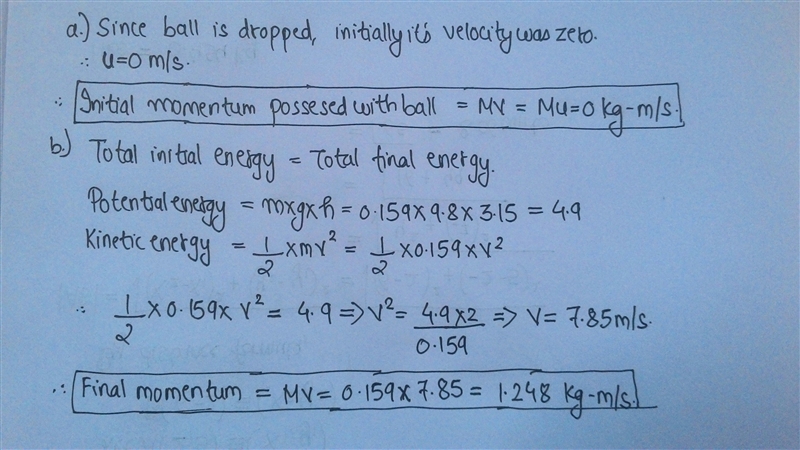 a.) Since ball is dropped, initially it's velocity was zero.
∴ u=0 m/s.
∴ Initial momentum possesed with ball = MV = Mu=0 kg-m/s.
b.) Total initial energy = Total final energy.
Potential energy = mxgxh = 0.159 x 9.8 x 3.15 = 4.9
Kinetic energy = 1/2 xmv² = 1/2 x0.159xv²
∴ 1/2 x 0.159x v² = 4.9 => v² = 4.9 x2/0.159 => V= 7.85m/s.
∴ Final momentum = MV= 0.159 x 7.85 = 1.248 Kg-m/s.